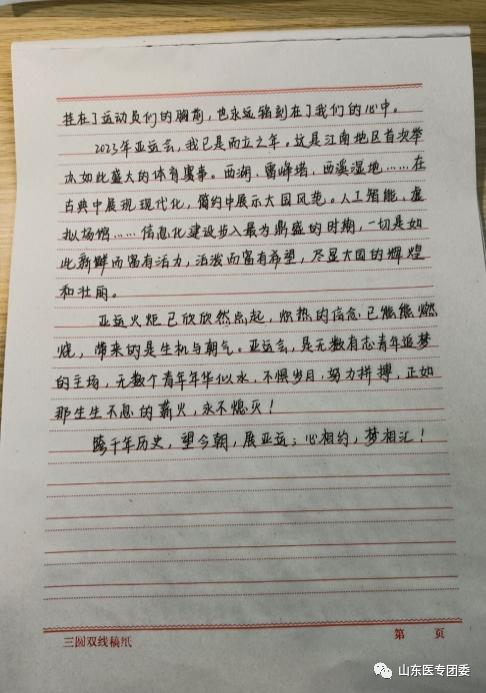 挂在了运动员们的胸前，也永远镌刻在了我们的心中。
2023年亚运会，我已是而立之年。这是江南地区首次举
办如此盛大的体育赛事。西湖、雷峰塔、西溪湿地……在
古典中展现现代化，简约中展示大国风范。人工智能、虚
拟场馆……信息化建设步入最为鼎盛的时期，一切是如
此新鲜而富有活力，活泼而富有希望，尽显大国的辉煌
和壮丽。
亚运火炬已欣欣然点起，炽热的信念已熊熊燃
烧，带来的是生机与朝气。亚运会，是无数有志青年追梦
的主场，无数个青年年华似水，不惧岁月，努力拼搏，正如
那生生不息的薪火，永不熄灭！
跨千年历史，望今朝，展亚运；心相约，梦相汇！
三圆双线稿纸
第 页
山东医专团委